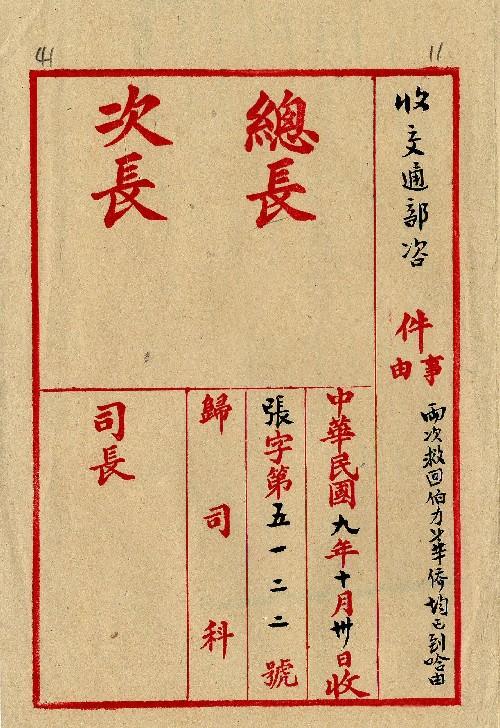 11
41
收交通部咨
件
事由
兩次救回伯力華僑均已到哈由
總長
次長
中華民國九年十月卅日收
張字第五一二二號
歸司科
司長